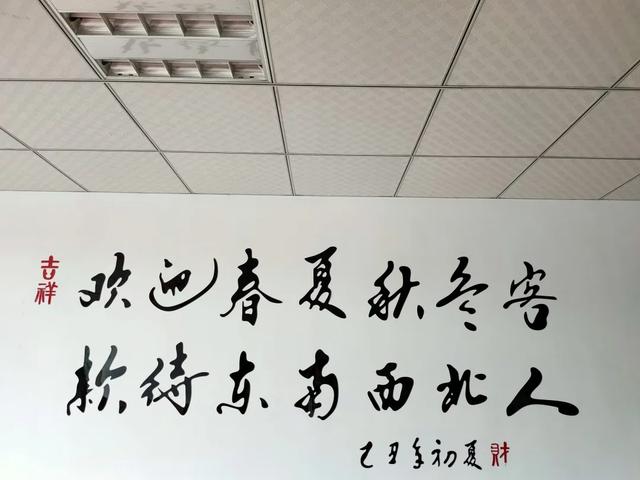 吉祥
欢迎春夏秋冬客
款待东南西北人
己丑年初夏
财